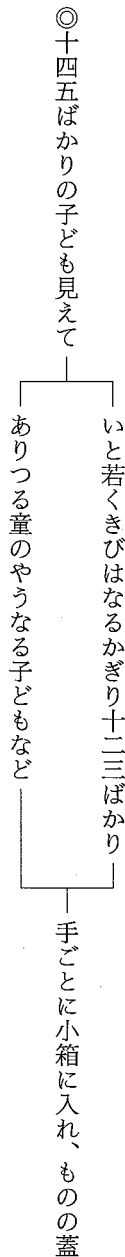 ◎十四五ばかりの子ども見えて
いと若くきびはなるかぎり十二三ばかり
ありつる童のやうなる子どもなど
手ごとに小箱に入れ、ものの蓋